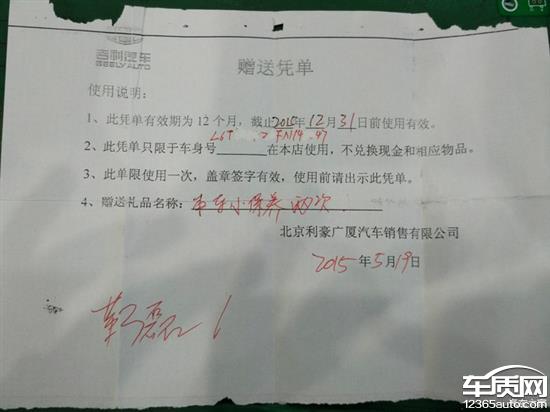 吉利汽车
GEELY AUTO
赠送凭单
使用说明：
1、此凭单有效期为12个月，截止2015年12月31日前使用有效。
2、此凭单只限于车身号 在本店使用，不兑换现金和相应物品。
3、此单限使用一次，盖章签字有效，使用前请出示此凭单。
4、赠送礼品名称：车小保养两次
北京利豪广厦汽车销售有限公司
2015年5月19日
车质网
12365auto.com